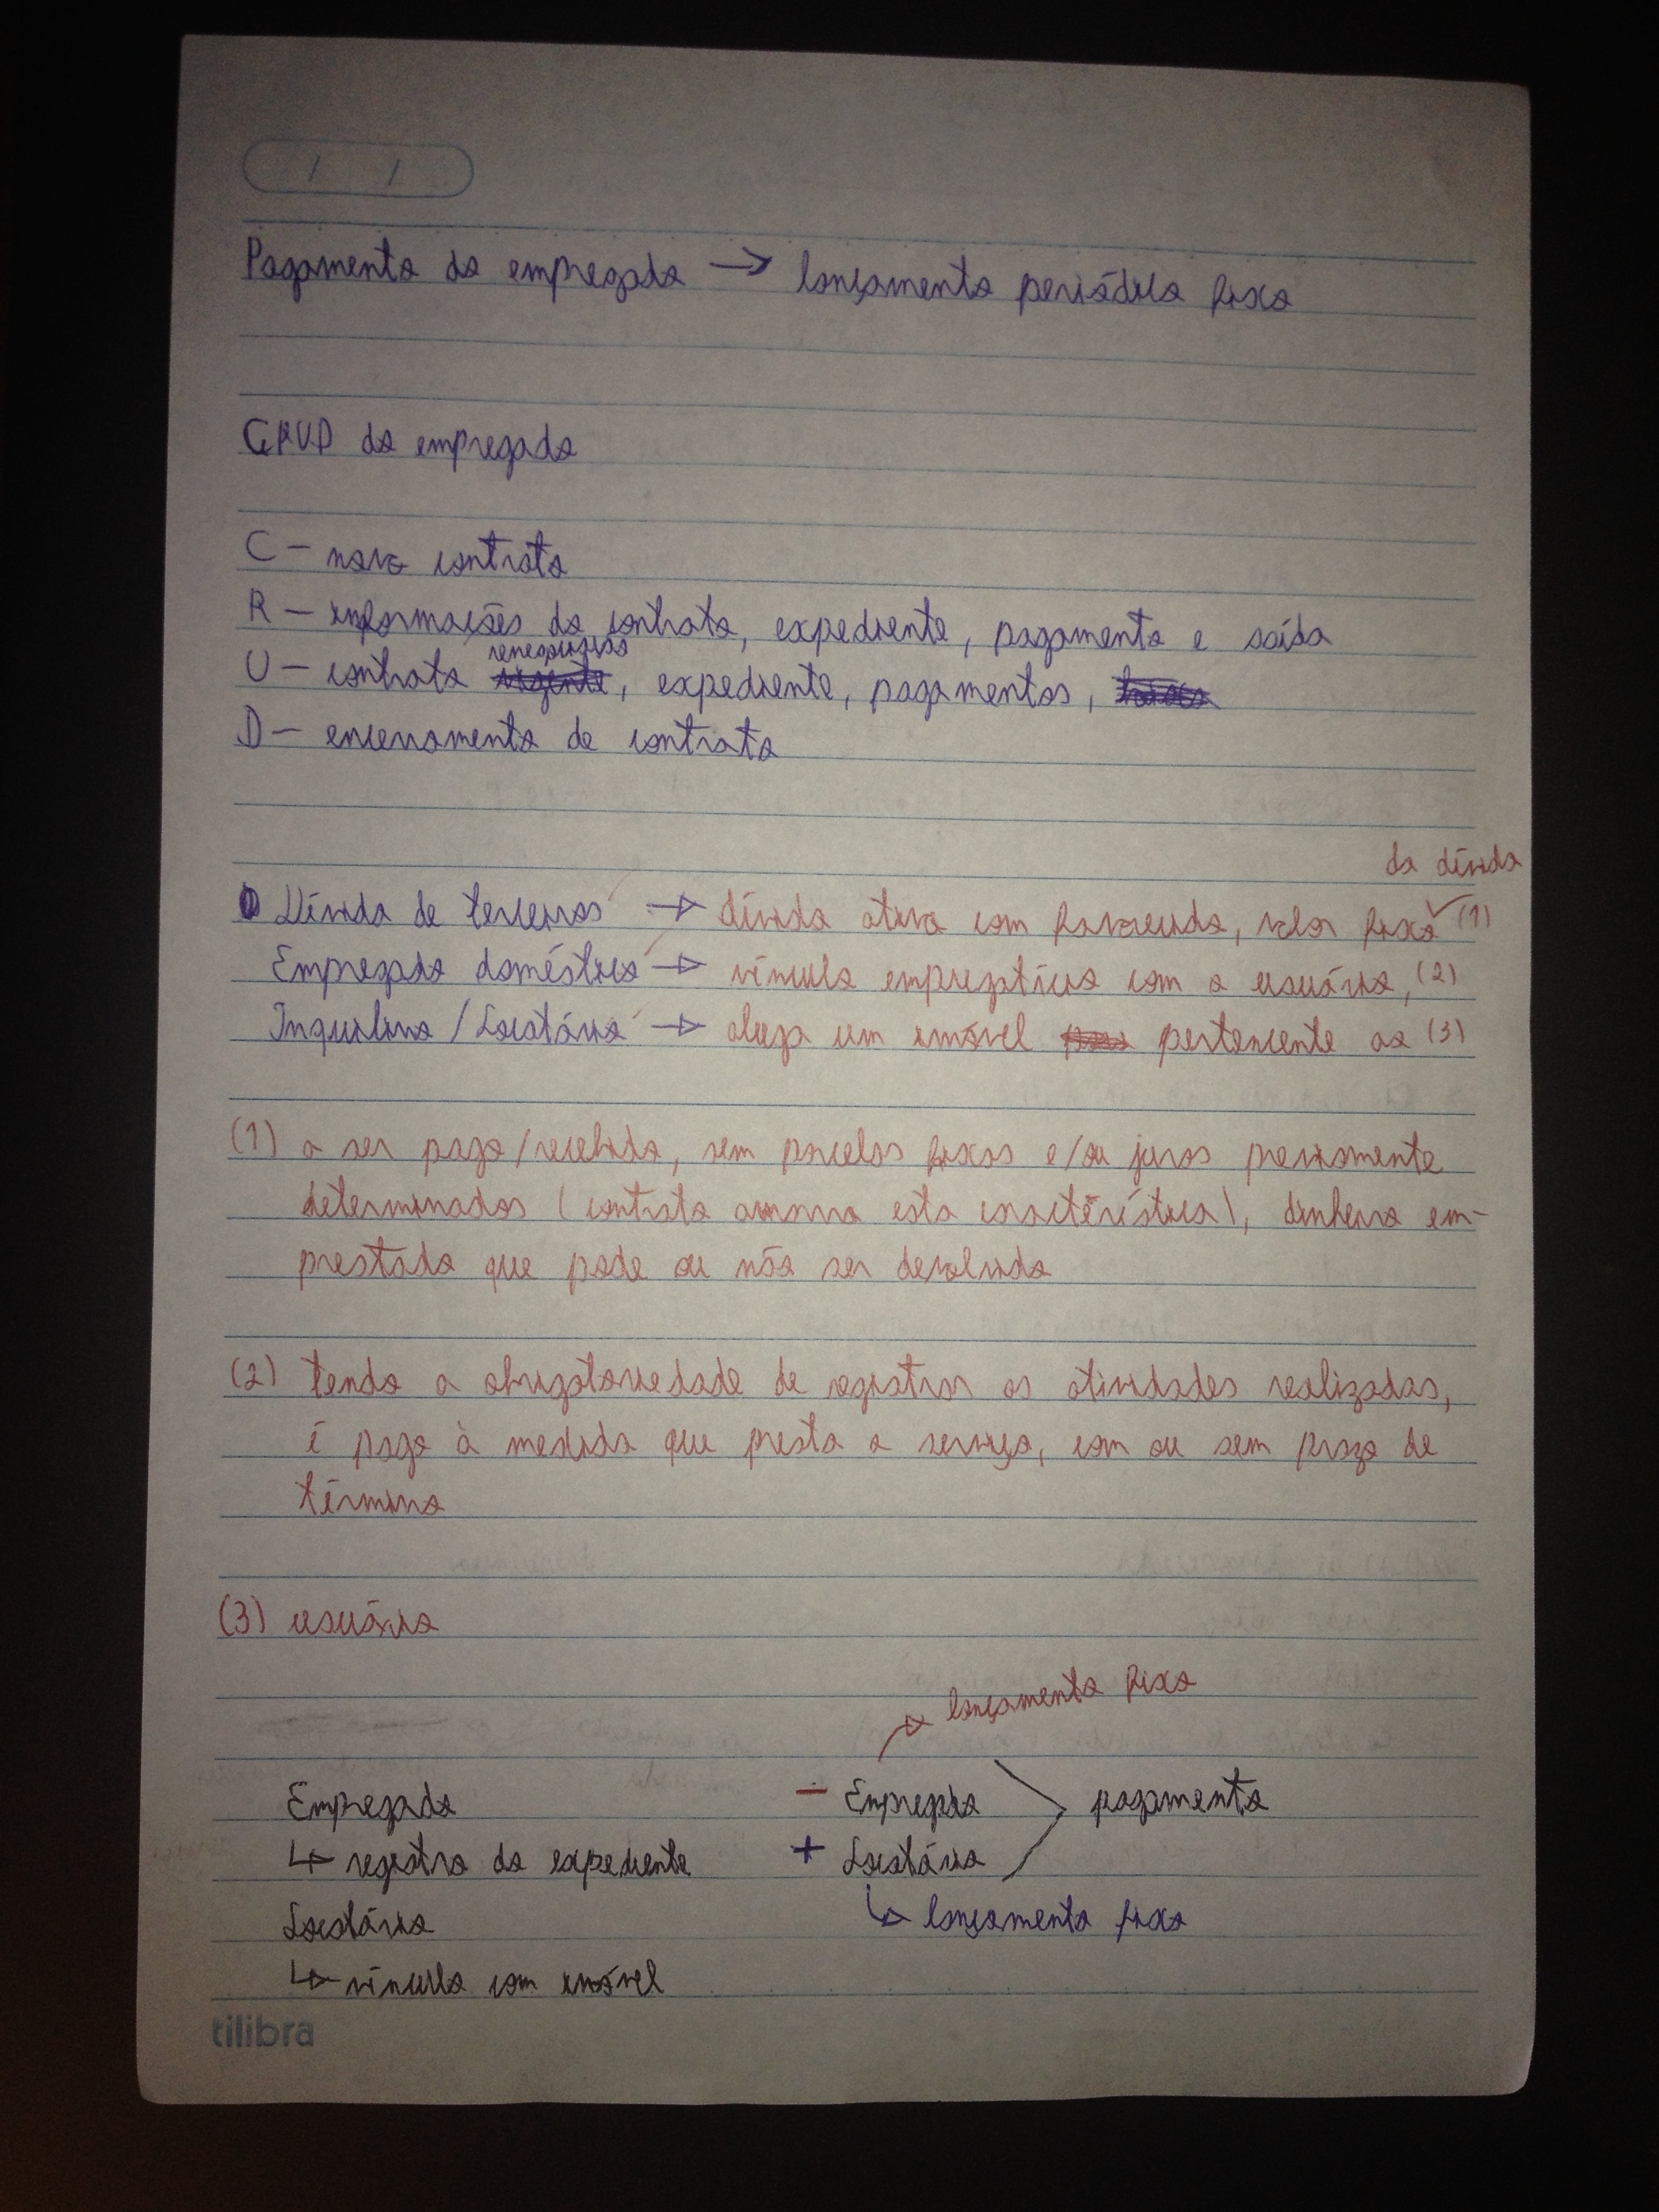 Pagamento do empregado → lançamento periódico fixo
CRUD do empregado
C - novo contrato
R - informações do contrato, expediente, pagamento e saída
renegociado
U - contrato vigente, expediente, pagamentos,
D - encerramento de contrato
da dívida
Dívida de terceiros → dívida ativa com favorecido, valor fixo (1)
Empregado doméstico → vínculo empregatício com o usuário, (2)
Inquilino / Locatário → aluga um imóvel pertencente ao (3)
(1) a ser pago/recebido, sem parcelas fixas e/ou juros previamente
determinados (contrato assume esta característica), dinheiro em-
prestado que pode ou não ser devolvido
(2) tendo a obrigatoriedade de registrar as atividades realizadas,
é pago à medida que presta o serviço, com ou sem prazo de
término
(3) usuário
→ lançamento fixo
Empregado - Empregado > pagamento
↳ registro do expediente + Locatário
Locatário ↳ lançamento fixo
↳ vínculo com imóvel
tilibra